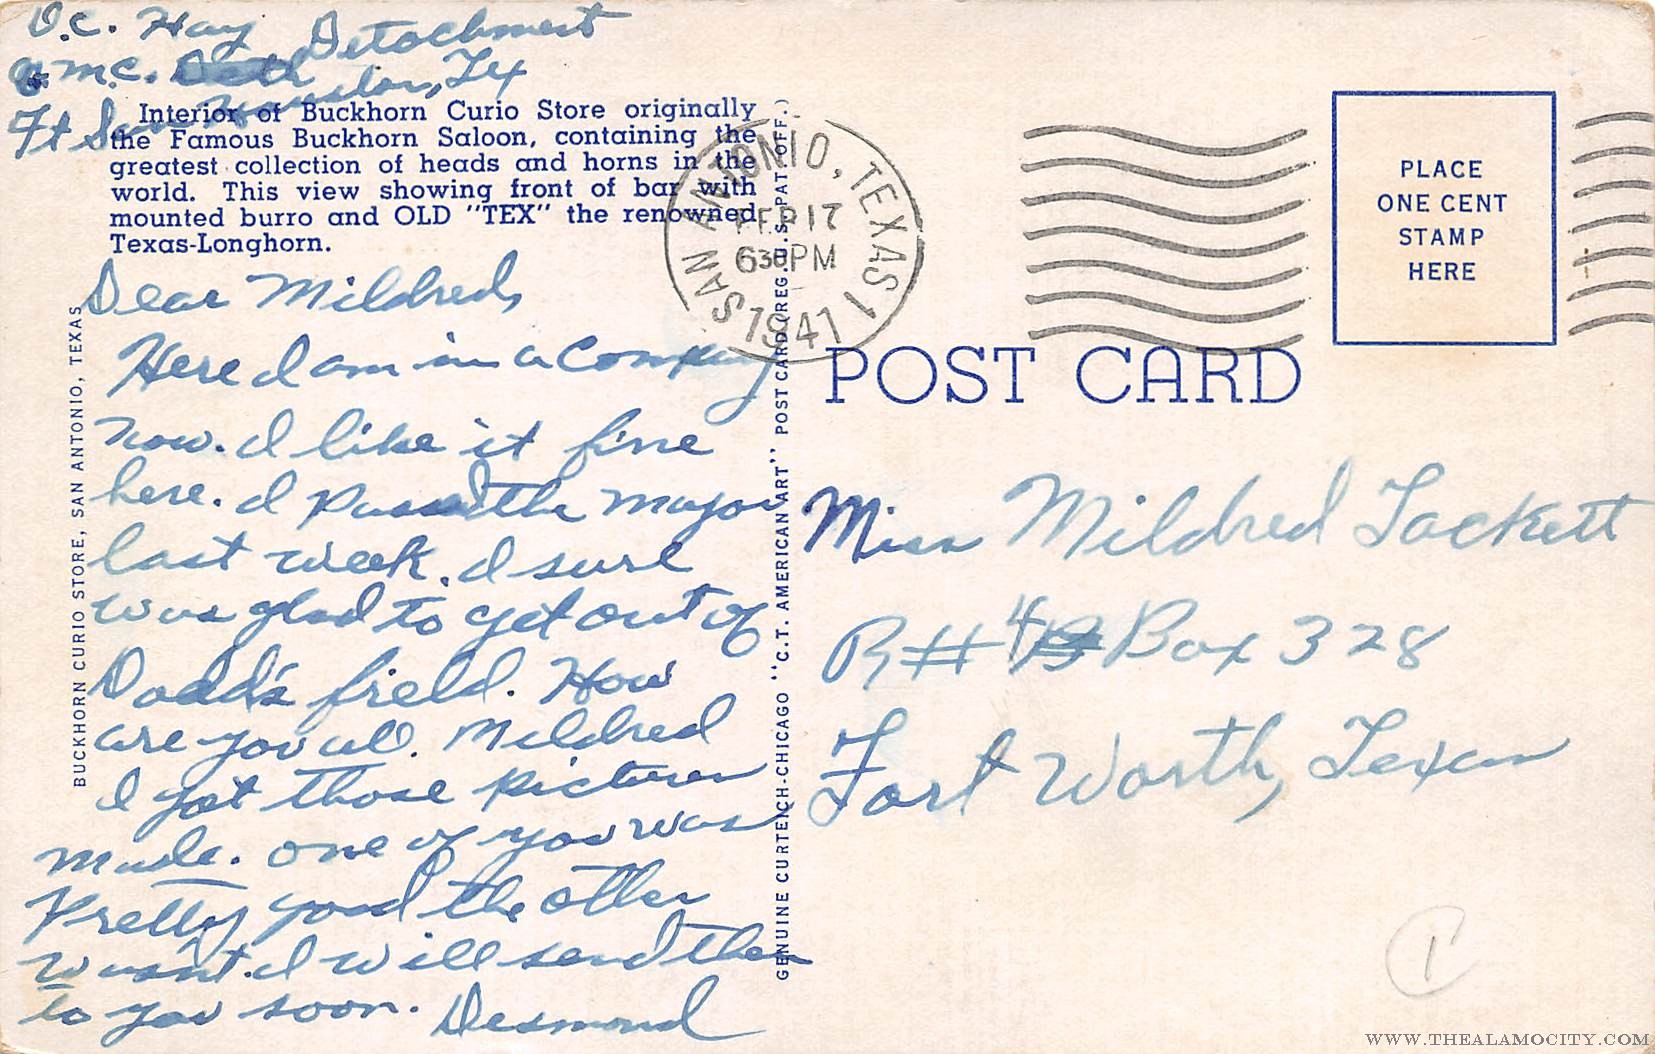 O.C. Hay
Q.M.C. Detachment
Ft Sam Houston, Tx
Interior of Buckhorn Curio Store originally
the Famous Buckhorn Saloon, containing the
greatest collection of heads and horns in the
world. This view showing front of bar with
mounted burro and OLD "TEX" the renowned
Texas-Longhorn.
BUCKHORN CURIO STORE, SAN ANTONIO, TEXAS
Dear Mildred,
Here I am in a Company
now. I like it fine
here. I Passed the Major
last week. I sure
was glad to get out of
Dodd's field. How
are you all. Mildred
I got those pictures
made. one of you was
Pretty good the other
wasn't. I will send them
to you soon. Desmond
GENUINE CURTEICH-CHICAGO "C.T. AMERICAN ART" POST CARD (REG. U.S. PAT. OFF.)
SAN ANTONIO, TEXAS 1
FEB 17
630PM
1941
PLACE
ONE CENT
STAMP
HERE
POST CARD
Miss Mildred Tackett
R#4 Box 328
Fort Worth, Texas
1
WWW.THEALAMOCITY.COM